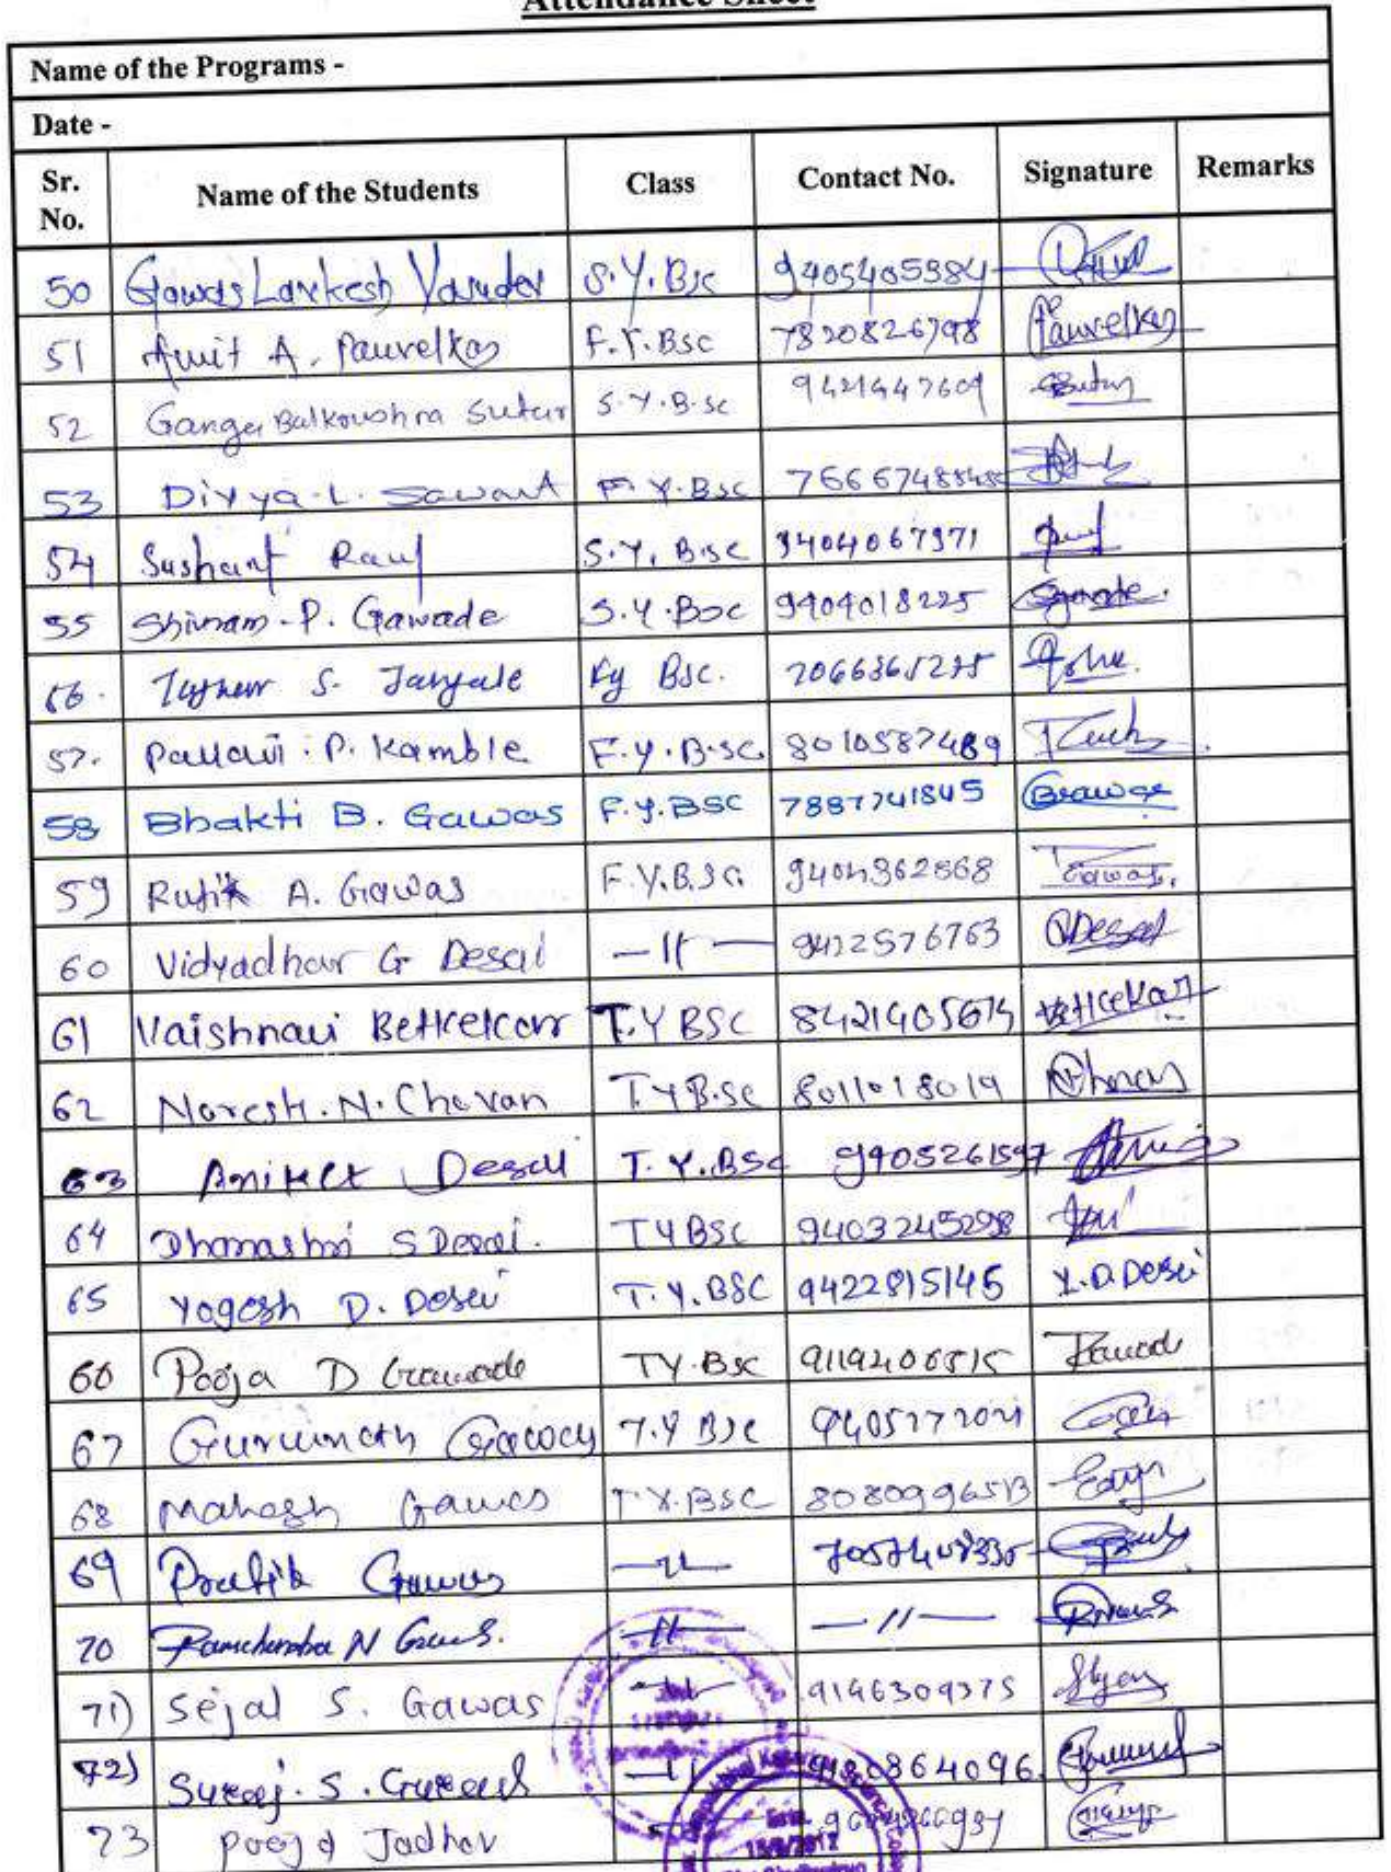 Attendance Sheet
Name of the Programs -
Date -
Sr. No. Name of the Students Class Contact No. Signature Remarks
50 Gawas Lankesh Vasudev S.Y.Bsc 9405405384
51 Amit A. Pauvelkar F.Y.BSC 7820826798 Pauvelkar
52 Ganga Balkrushna Sutar S.Y.B.sc 9421447609 Sutar
53 Divya.L. Sawant F.Y.Bsc
54 Sushant Raul S.Y. B.sc 9404067971
55 Shivam.P. Gawade S.Y.Bsc 9404018225
56. S. Jangale Fy Bsc.
57. Pallavi.P. Kamble F.Y.B.sc 8010587489
58 Bhakti B. Gawas F.Y.BSC 7887741845 Gawas
59 Rutik A. Gawas F.Y.B.Sc. 9404362868 Gawas.
60 Vidyadhar G Desai —11— 9422576763 Desai
61 Vaishnavi Betkekar T.Y BSC 8421405674 Betkekar
62 Naresh.N.Chavan T.Y B.sc 8011018019
63 Aniket Desai T.Y.BSc 9405261597
64 Dhanashri S Desai. TYBSC 9403245298
65 Yogesh D. Desai T.Y.BSC 9422815145 Y.D.Desai
66 Pooja D Gawade TY.BSc 9119406515 Gawade
67 Gurunath Gawas T.Y BSc
68 Mahesh Gawas T.Y.BSC 8080996513
69 Pratik Gawas —11—
70 Ramchandra N Gawas. —11— —11—
71) Sejal S. Gawas —11— 9146309375
72) Suraj.S.Gurav —11—
73 Pooja Jadhav